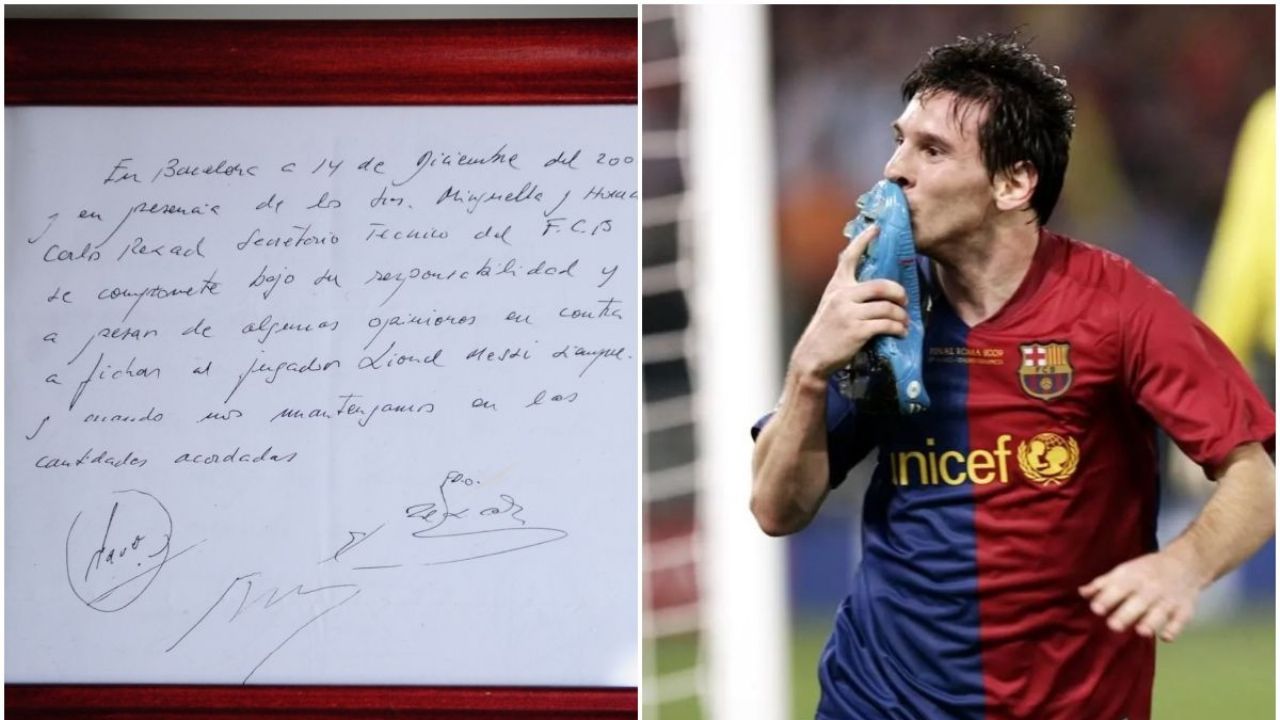 En Barcelona a 14 de Diciembre del 200
y en presencia de los Srs. Minguella y Horac
Carlos Rexach Secretario Tecnico del F.C.B
se compromete bajo su responsabilidad y
a pesar de algunas opiniones en contra
a fichar al jugador Lionel Messi siempre.
y cuando nos mantengamos en las
cantidades acordadas
Fdo.
FINAL ROMA 2009
FCB
unicef